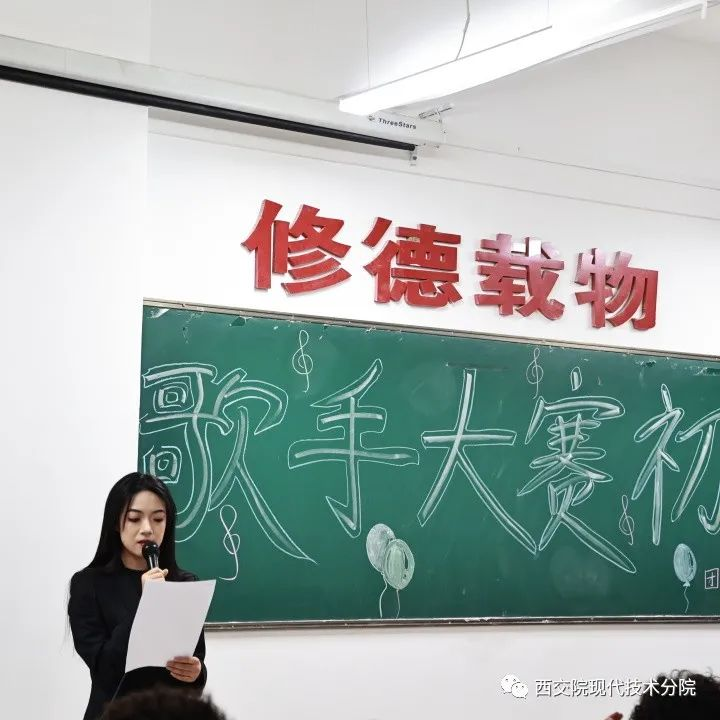 ThreeStars
修德载物
歌手大赛初
团
西交院现代技术分院